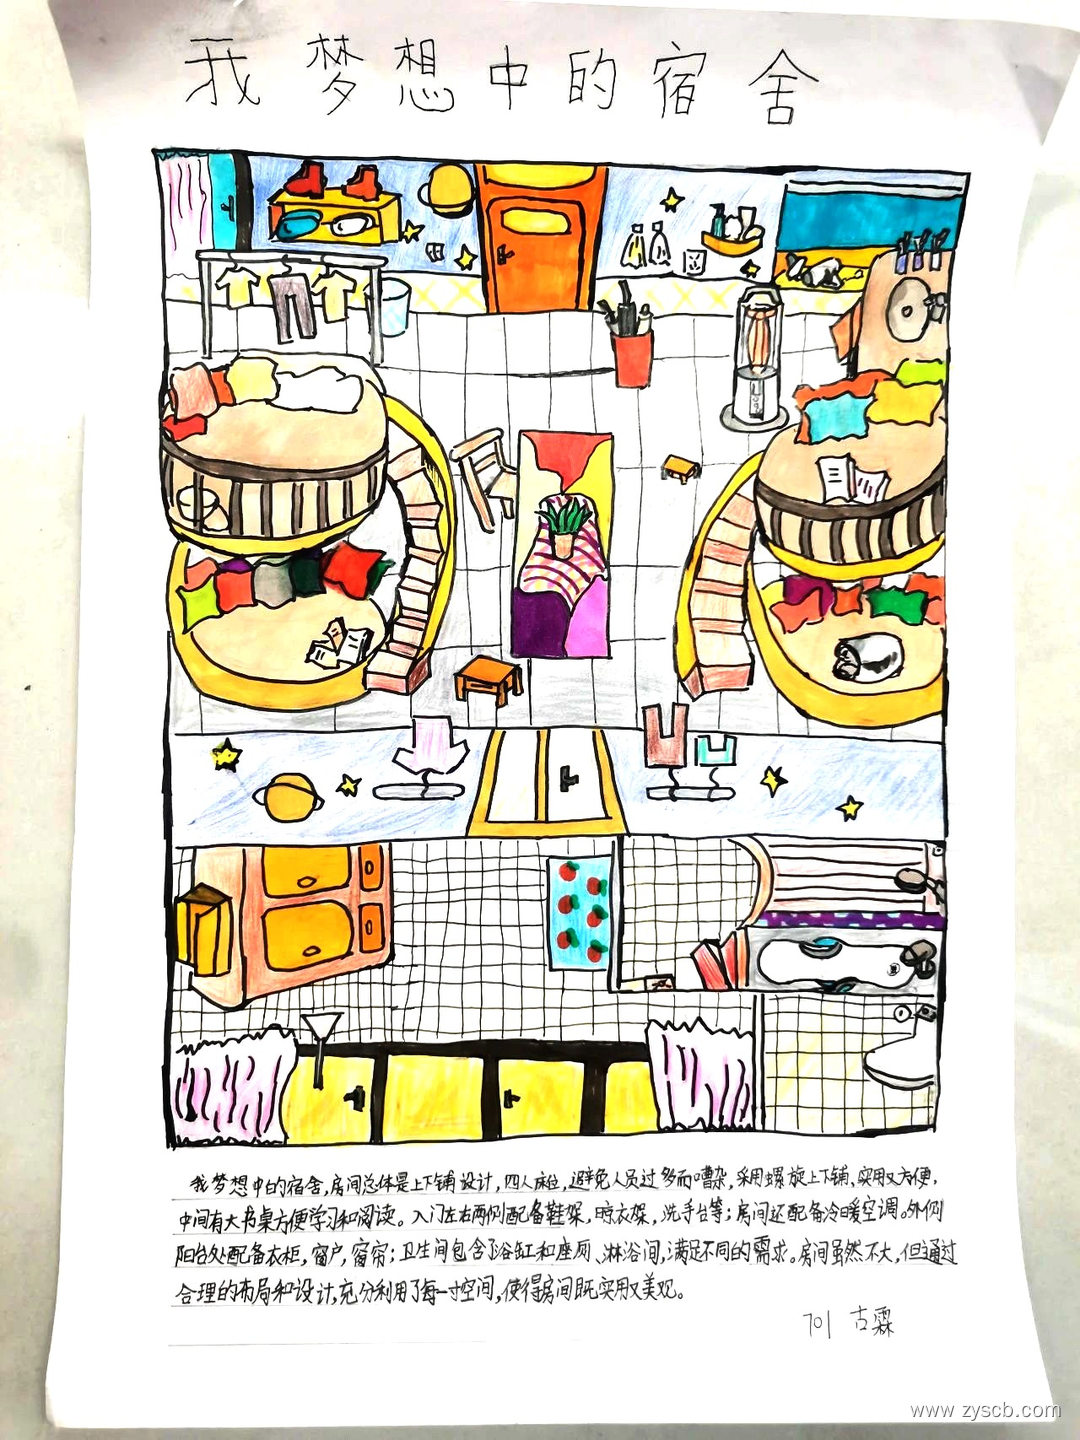 我梦想中的宿舍
我梦想中的宿舍，房间总体是上下铺设计，四人床位，避免人员过多而嘈杂，采用螺旋上下铺，实用又方便，
中间有大书桌方便学习和阅读。入门左右两侧配备鞋架，晾衣架，洗手台等；房间还配备冷暖空调。外侧
阳台处配备衣柜，窗户，窗帘；卫生间包含了浴缸和座厕、淋浴间，满足不同的需求。房间虽然不大，但通过
合理的布局和设计，充分利用了每一寸空间，使得房间既实用又美观。
701 古霖
www.zyscb.com